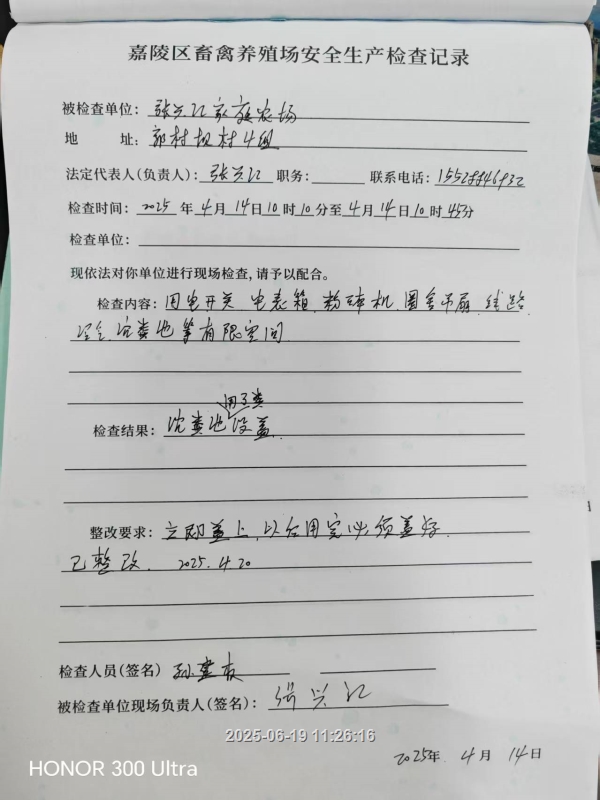 嘉陵区畜禽养殖场安全生产检查记录
被检查单位：张兴江家庭农场
地 址：郭村坝村4组
法定代表人(负责人)：张兴江 职务： 联系电话：15528846932
检查时间：2025年4月14日10时10分至4月14日10时45分
检查单位：
现依法对你单位进行现场检查,请予以配合。
检查内容：用电开关 电表箱、粉碎机、圈舍吊扇、线路
安全、沼粪池等有限空间
用了粪
检查结果：沼粪池没盖
整改要求：立即盖上,以后用完必须盖好.
已整改. 2025.4.20
检查人员(签名) 孙
被检查单位现场负责人(签名)：张兴江
2025-06-19 11:26:16
2025年4月14日
HONOR 300 Ultra